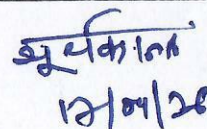 सूर्यकान्त
12/04/26